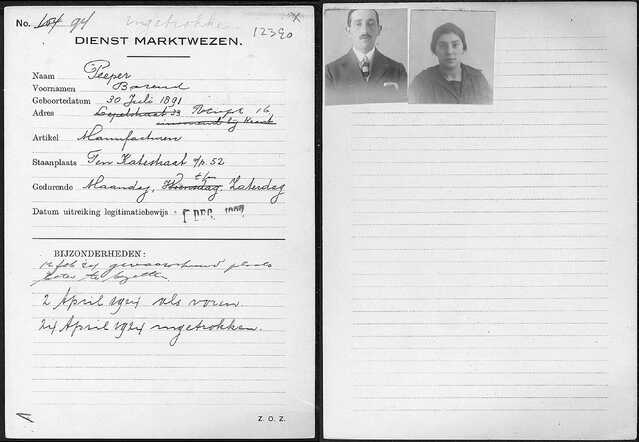 No. 154 94 ingetrokken
12390
DIENST MARKTWEZEN.
Naam Peeper
Voornamen Barend
Geboortedatum 30 Juli 1891
Adres Lepelstraat 33 16
inwonend bij
Artikel Manufacturen
Staanplaats Ten Katestraat d/p. 52
t/m
Gedurende Maandag, Woensdag, Zaterdag
Datum uitreiking legitimatiebewijs : DEC.
BIJZONDERHEDEN:
14 feb 24 gewaarschuwd plaats
beter te bezetten
2 April 1924 als voren.
24 April 1924 ingetrokken.
Z. O. Z.